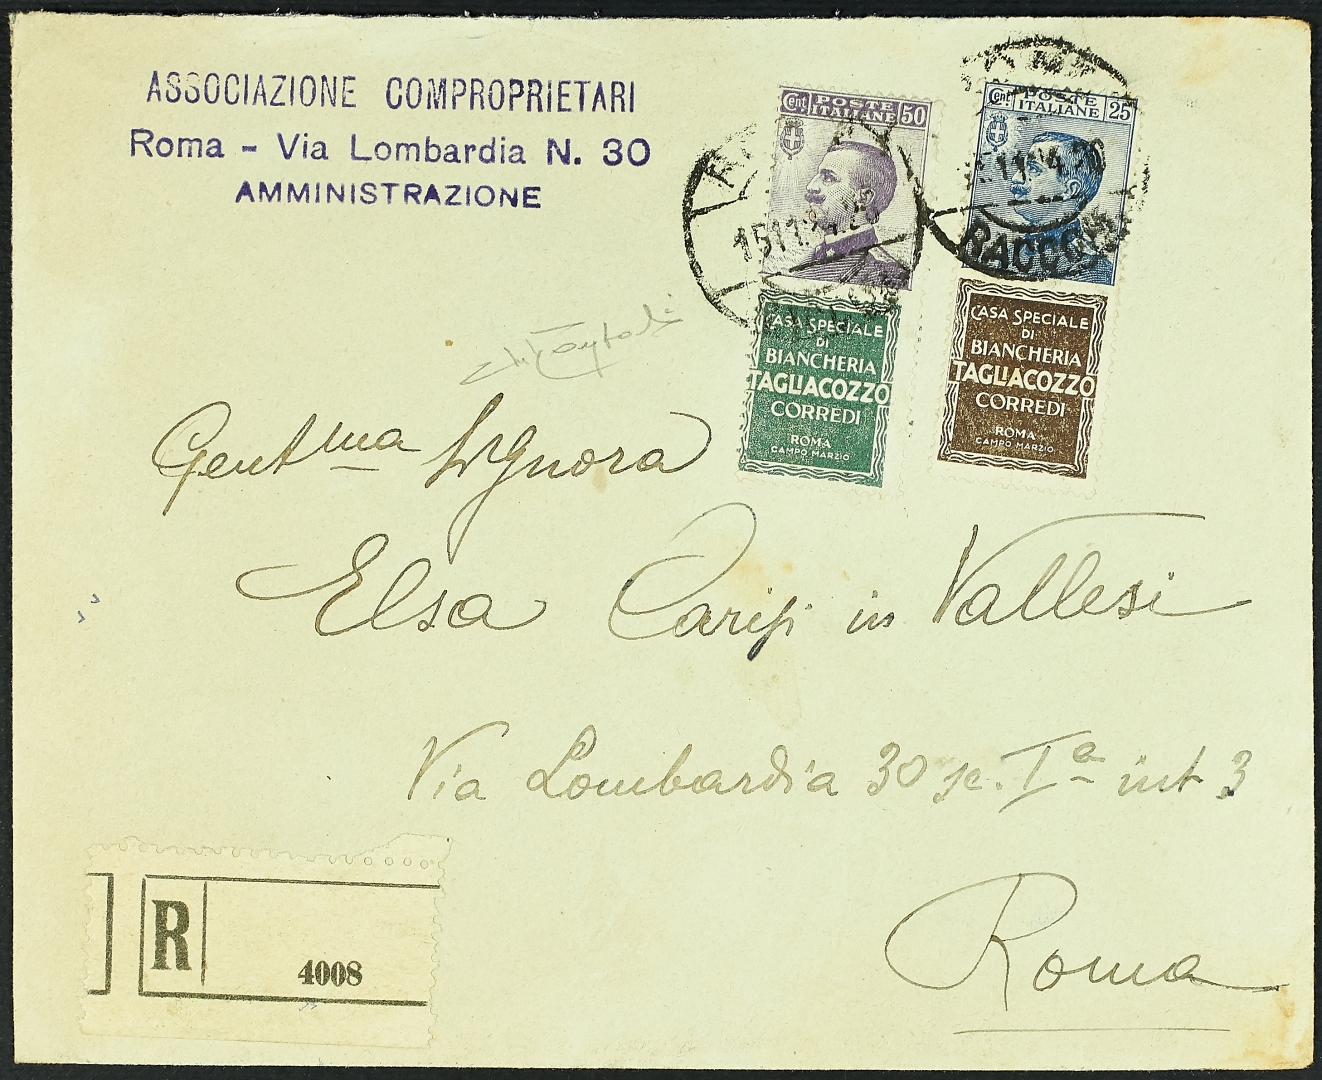 ASSOCIAZIONE COMPROPRIETARI
Roma - Via Lombardia N. 30
AMMINISTRAZIONE
Cent. POSTE ITALIANE 50
15 11.24.26
CASA SPECIALE
DI
BIANCHERIA
TAGLIACOZZO
CORREDI
ROMA
CAMPO MARZIO
Cent. POSTE ITALIANE 25
ROMA
RACCOM
CASA SPECIALE
DI
BIANCHERIA
TAGLIACOZZO
CORREDI
ROMA
CAMPO MARZIO
Gentma Signora
Elsa in Vallesi
Via Lombardia 30 sc. Ia int 3
Roma
R
4008